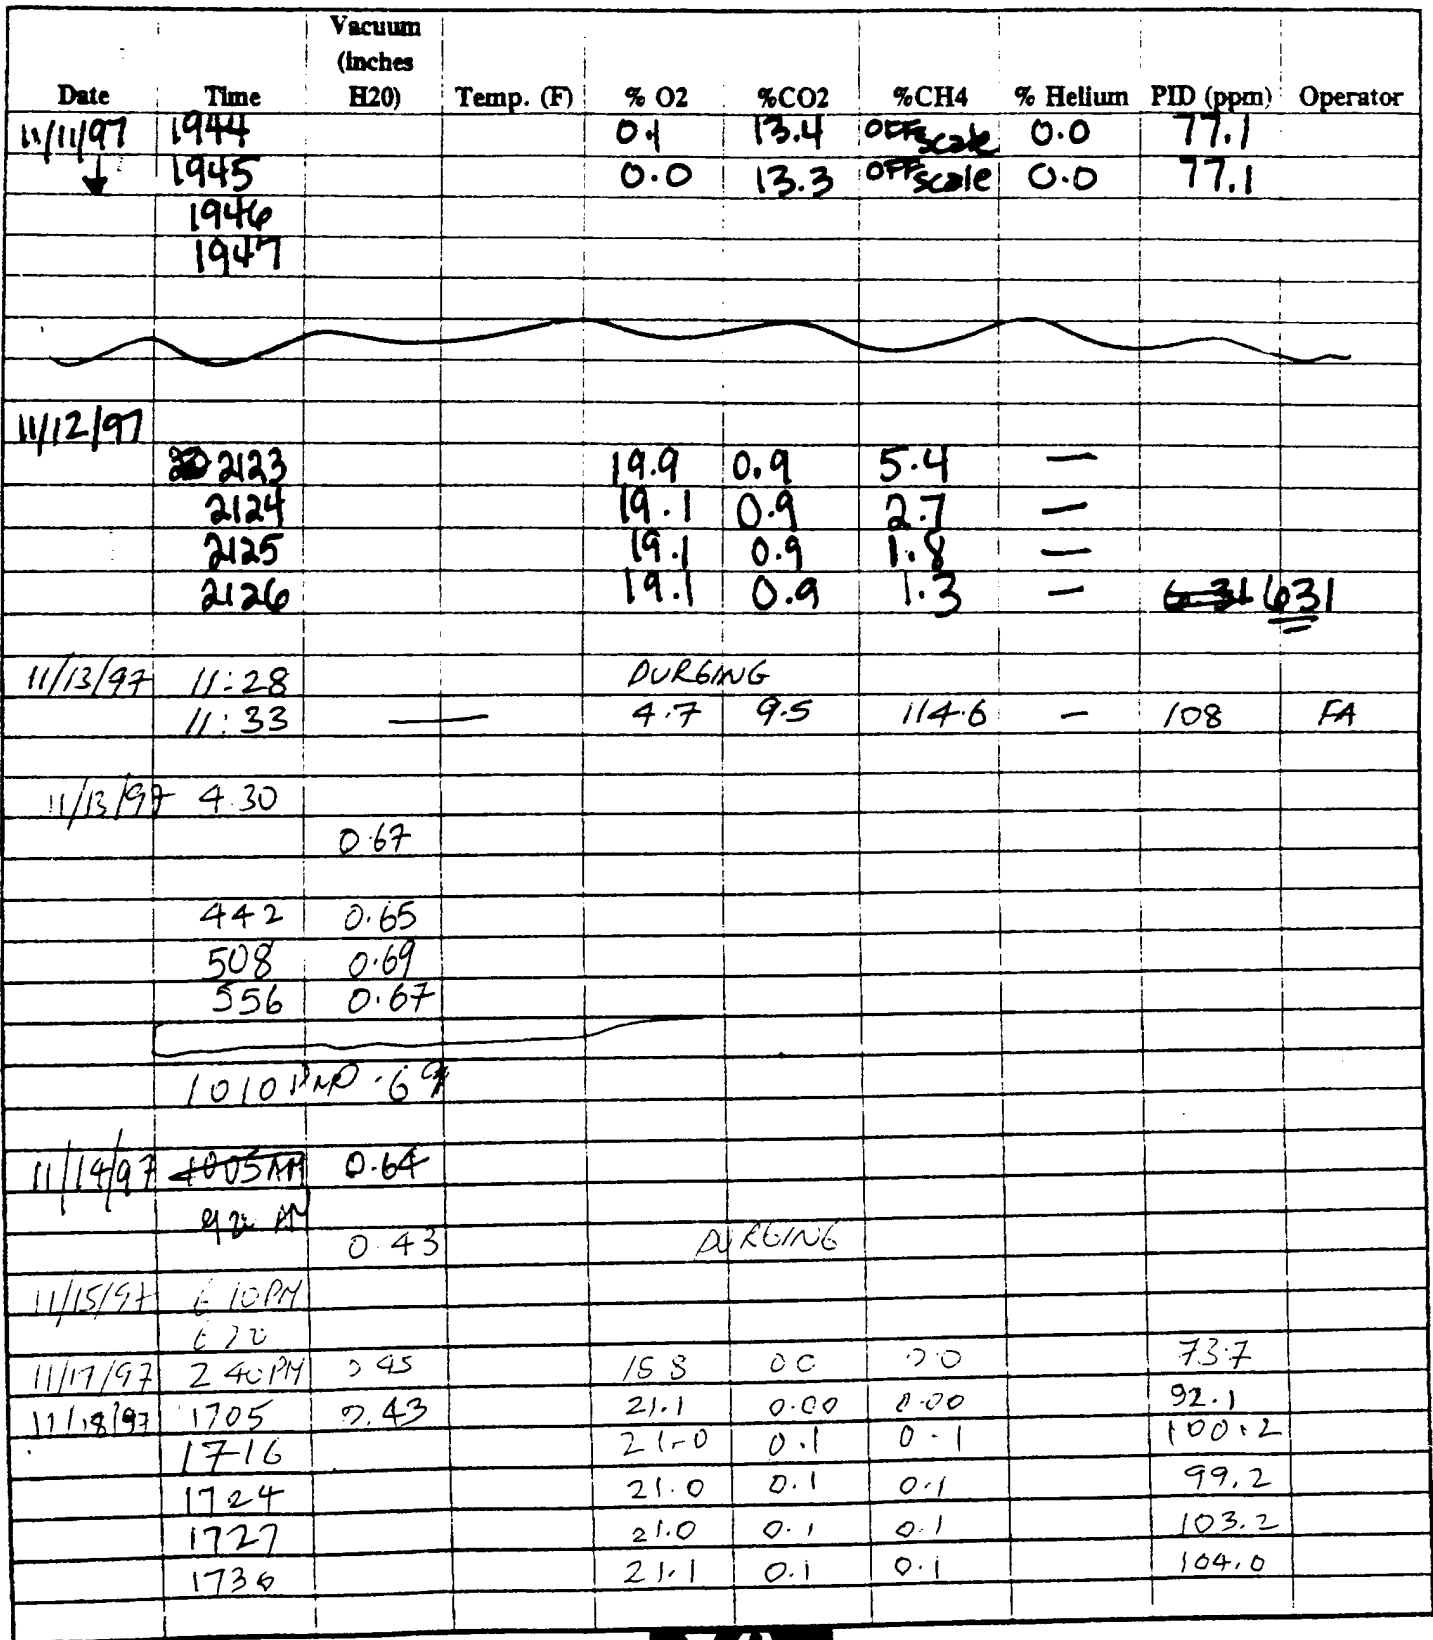 Date Time Vacuum (inches H20) Temp. (F) % O2 %CO2 %CH4 % Helium PID (ppm) Operator
11/11/97 1944 0.1 13.4 OFF scale 0.0 77.1
↓ 1945 0.0 13.3 OFF scale 0.0 77.1
1946
1947
11/12/97
2123 19.9 0.9 5.4 —
2124 19.1 0.9 2.7 —
2125 19.1 0.9 1.8 —
2126 19.1 0.9 1.3 — 6.31 631
11/13/97 11:28 PURGING
11:33 — 4.7 9.5 114.6 — 108 FA
11/13/97 4.30
0.67
442 0.65
508 0.69
556 0.67
1010 PM 0.69
11/14/97 1005 AM 0.64
AM
0.43 PURGING
11/15/97 6 10PM
6 20
11/17/97 2 40PM 0 45 15 8 0 0 0.0 73.7
11/18/97 1705 0.43 21.1 0.00 0.00 92.1
1716 21.0 0.1 0.1 100.2
1724 21.0 0.1 0.1 99.2
1727 21.0 0.1 0.1 103.2
1736 21.1 0.1 0.1 104.0